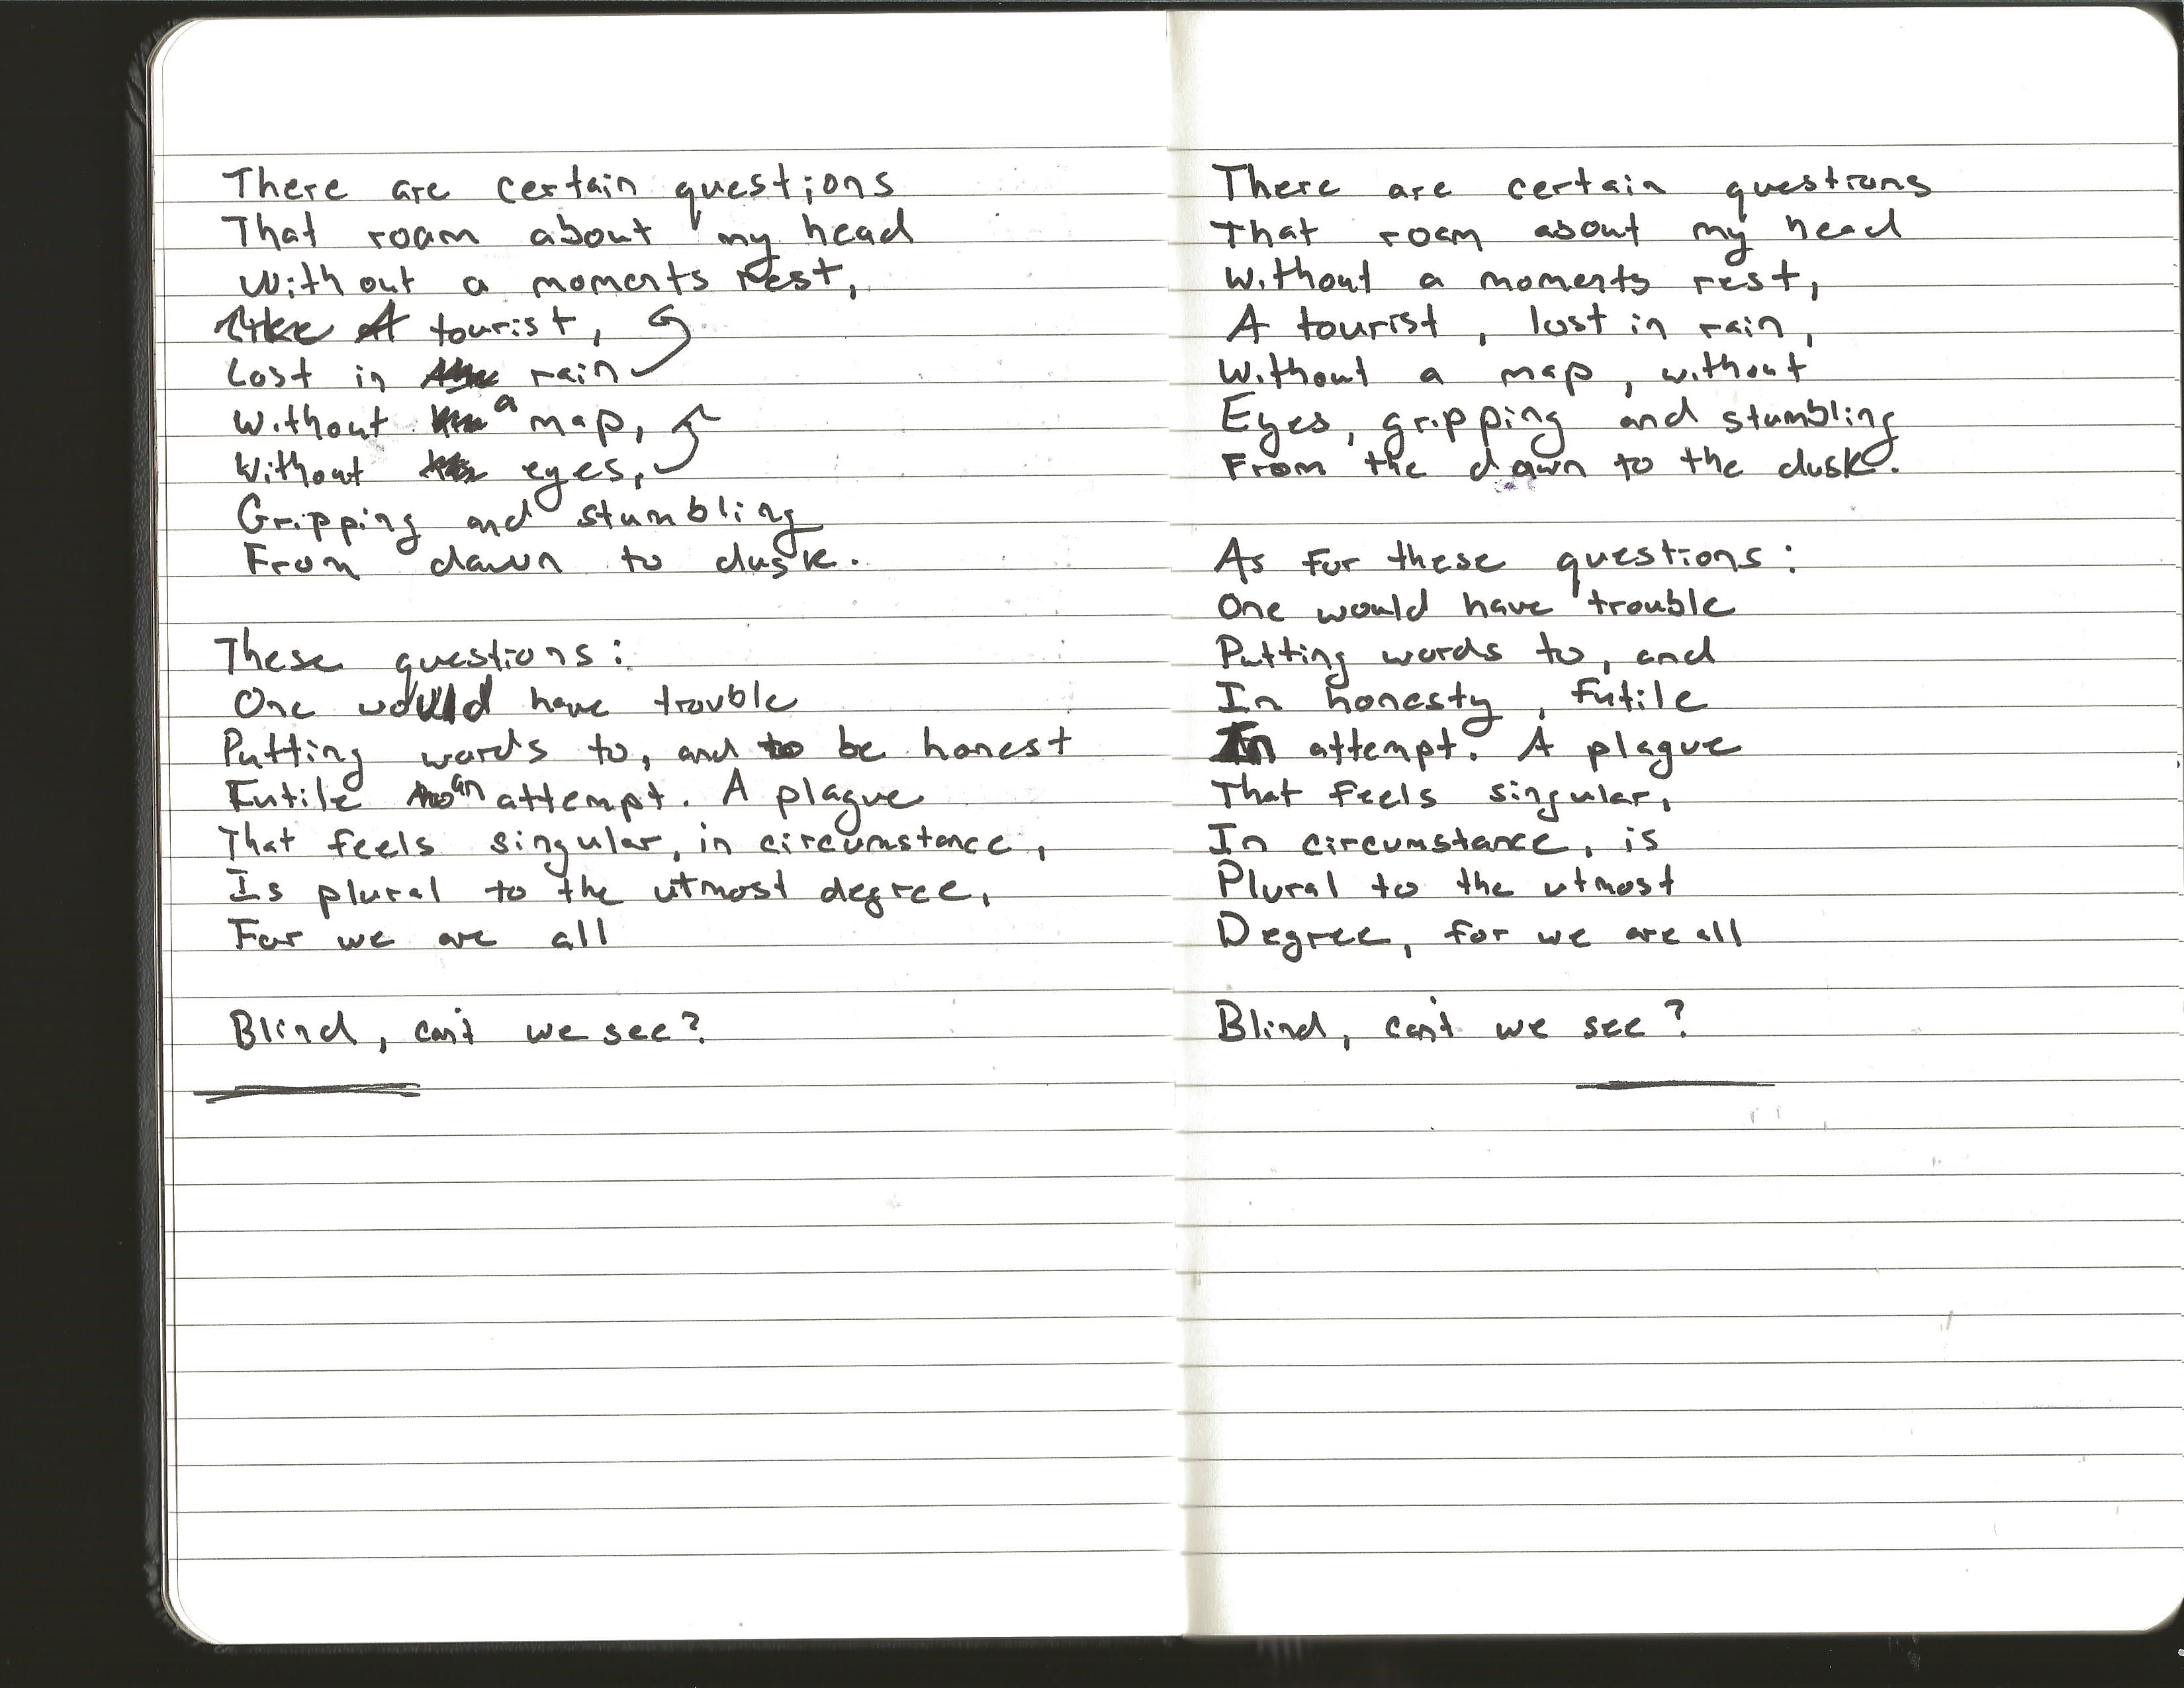 There are certain questions
That roam about my head
Without a moments rest,
Like A tourist,
Lost in rain
Without a map,
Without eyes,
Gripping and stumbling
From dawn to dusk.
These questions:
One would have trouble
Putting words to, and to be honest
Futile an attempt. A plague
That feels singular, in circumstance,
Is plural to the utmost degree,
For we are all
Blind, can't we see?
There are certain questions
That roam about my head
Without a moments rest,
A tourist, lost in rain,
Without a map, without
Eyes, gripping and stumbling
From the dawn to the dusk.
As for these questions:
One would have trouble
Putting words to, and
In honesty, futile
In attempt. A plague
That feels singular,
In circumstance, is
Plural to the utmost
Degree, for we are all
Blind, can't we see?